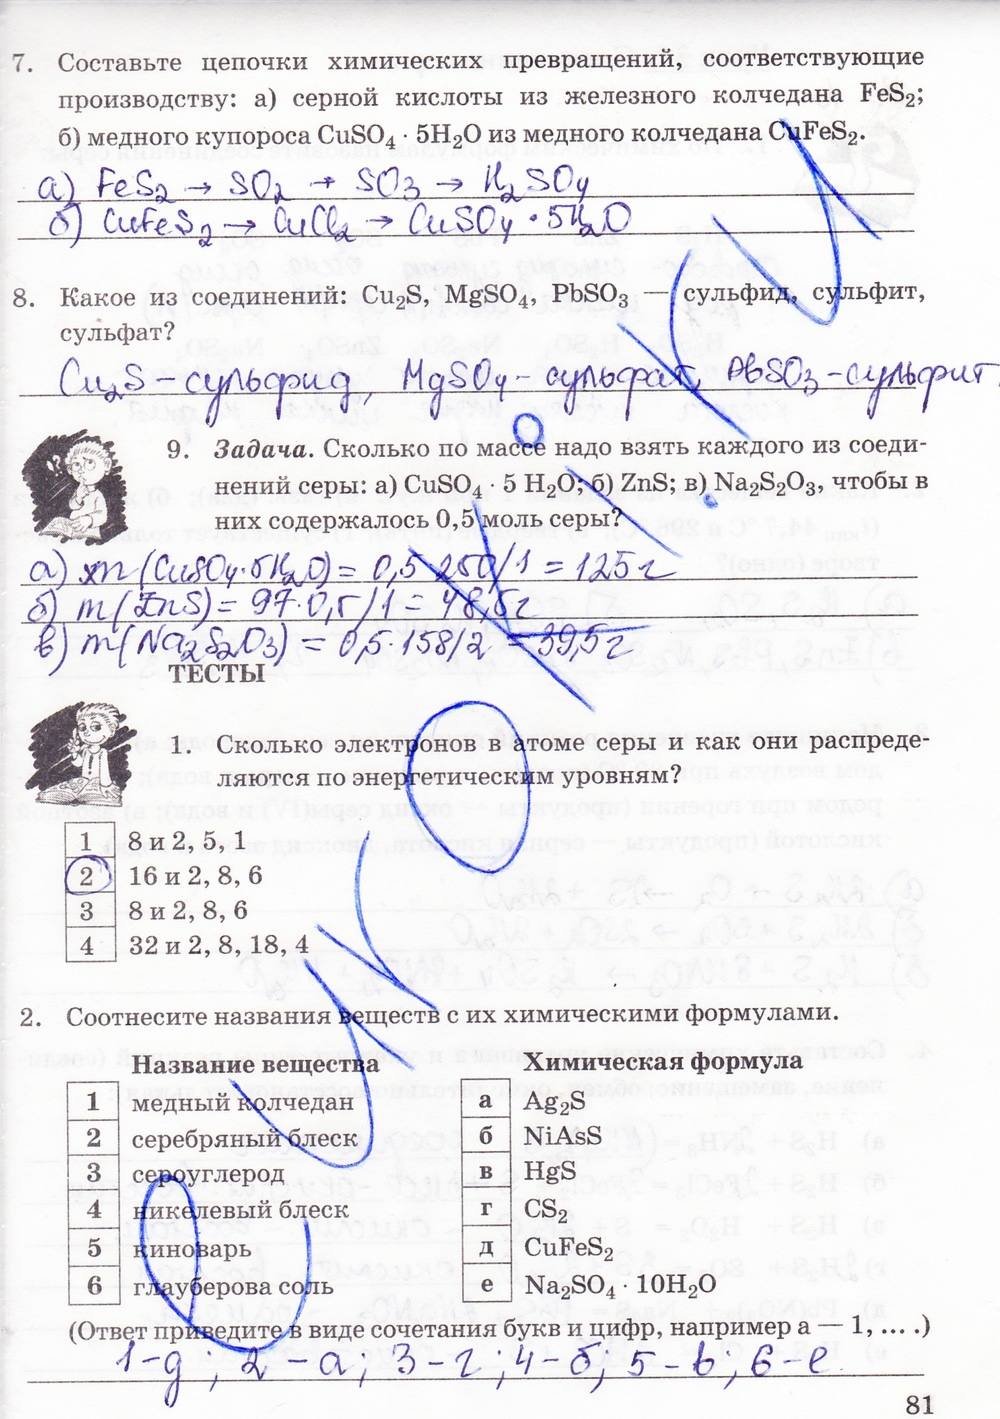 7. Составьте цепочки химических превращений, соответствующие
производству: а) серной кислоты из железного колчедана FeS₂;
б) медного купороса CuSO₄ · 5H₂O из медного колчедана CuFeS₂.
а) FeS₂ → SO₂ → SO₃ → H₂SO₄
б) CuFeS₂ → CuCl₂ → CuSO₄ · 5H₂O
8. Какое из соединений: Cu₂S, MgSO₄, PbSO₃ — сульфид, сульфит,
сульфат?
Cu₂S – сульфид, MgSO₄ – сульфат, PbSO₃ – сульфит.
9. Задача. Сколько по массе надо взять каждого из соеди-
нений серы: а) CuSO₄ · 5 H₂O; б) ZnS; в) Na₂S₂O₃, чтобы в
них содержалось 0,5 моль серы?
а) m(CuSO₄·5H₂O) = 0,5·250/1 = 125 г
б) m(ZnS) = 97·0,5/1 = 48,5г
в) m(Na₂S₂O₃) = 0,5·158/2 = 39,5г
ТЕСТЫ
1. Сколько электронов в атоме серы и как они распреде-
ляются по энергетическим уровням?
1 8 и 2, 5, 1
2 16 и 2, 8, 6
3 8 и 2, 8, 6
4 32 и 2, 8, 18, 4
2. Соотнесите названия веществ с их химическими формулами.
Название вещества Химическая формула
1 медный колчедан а Ag₂S
2 серебряный блеск б NiAsS
3 сероуглерод в HgS
4 никелевый блеск г CS₂
5 киноварь д CuFeS₂
6 глауберова соль е Na₂SO₄ · 10H₂O
(Ответ приведите в виде сочетания букв и цифр, например а — 1, ... .)
1-д, 2-а, 3-г, 4-б, 5-в, 6-е
81